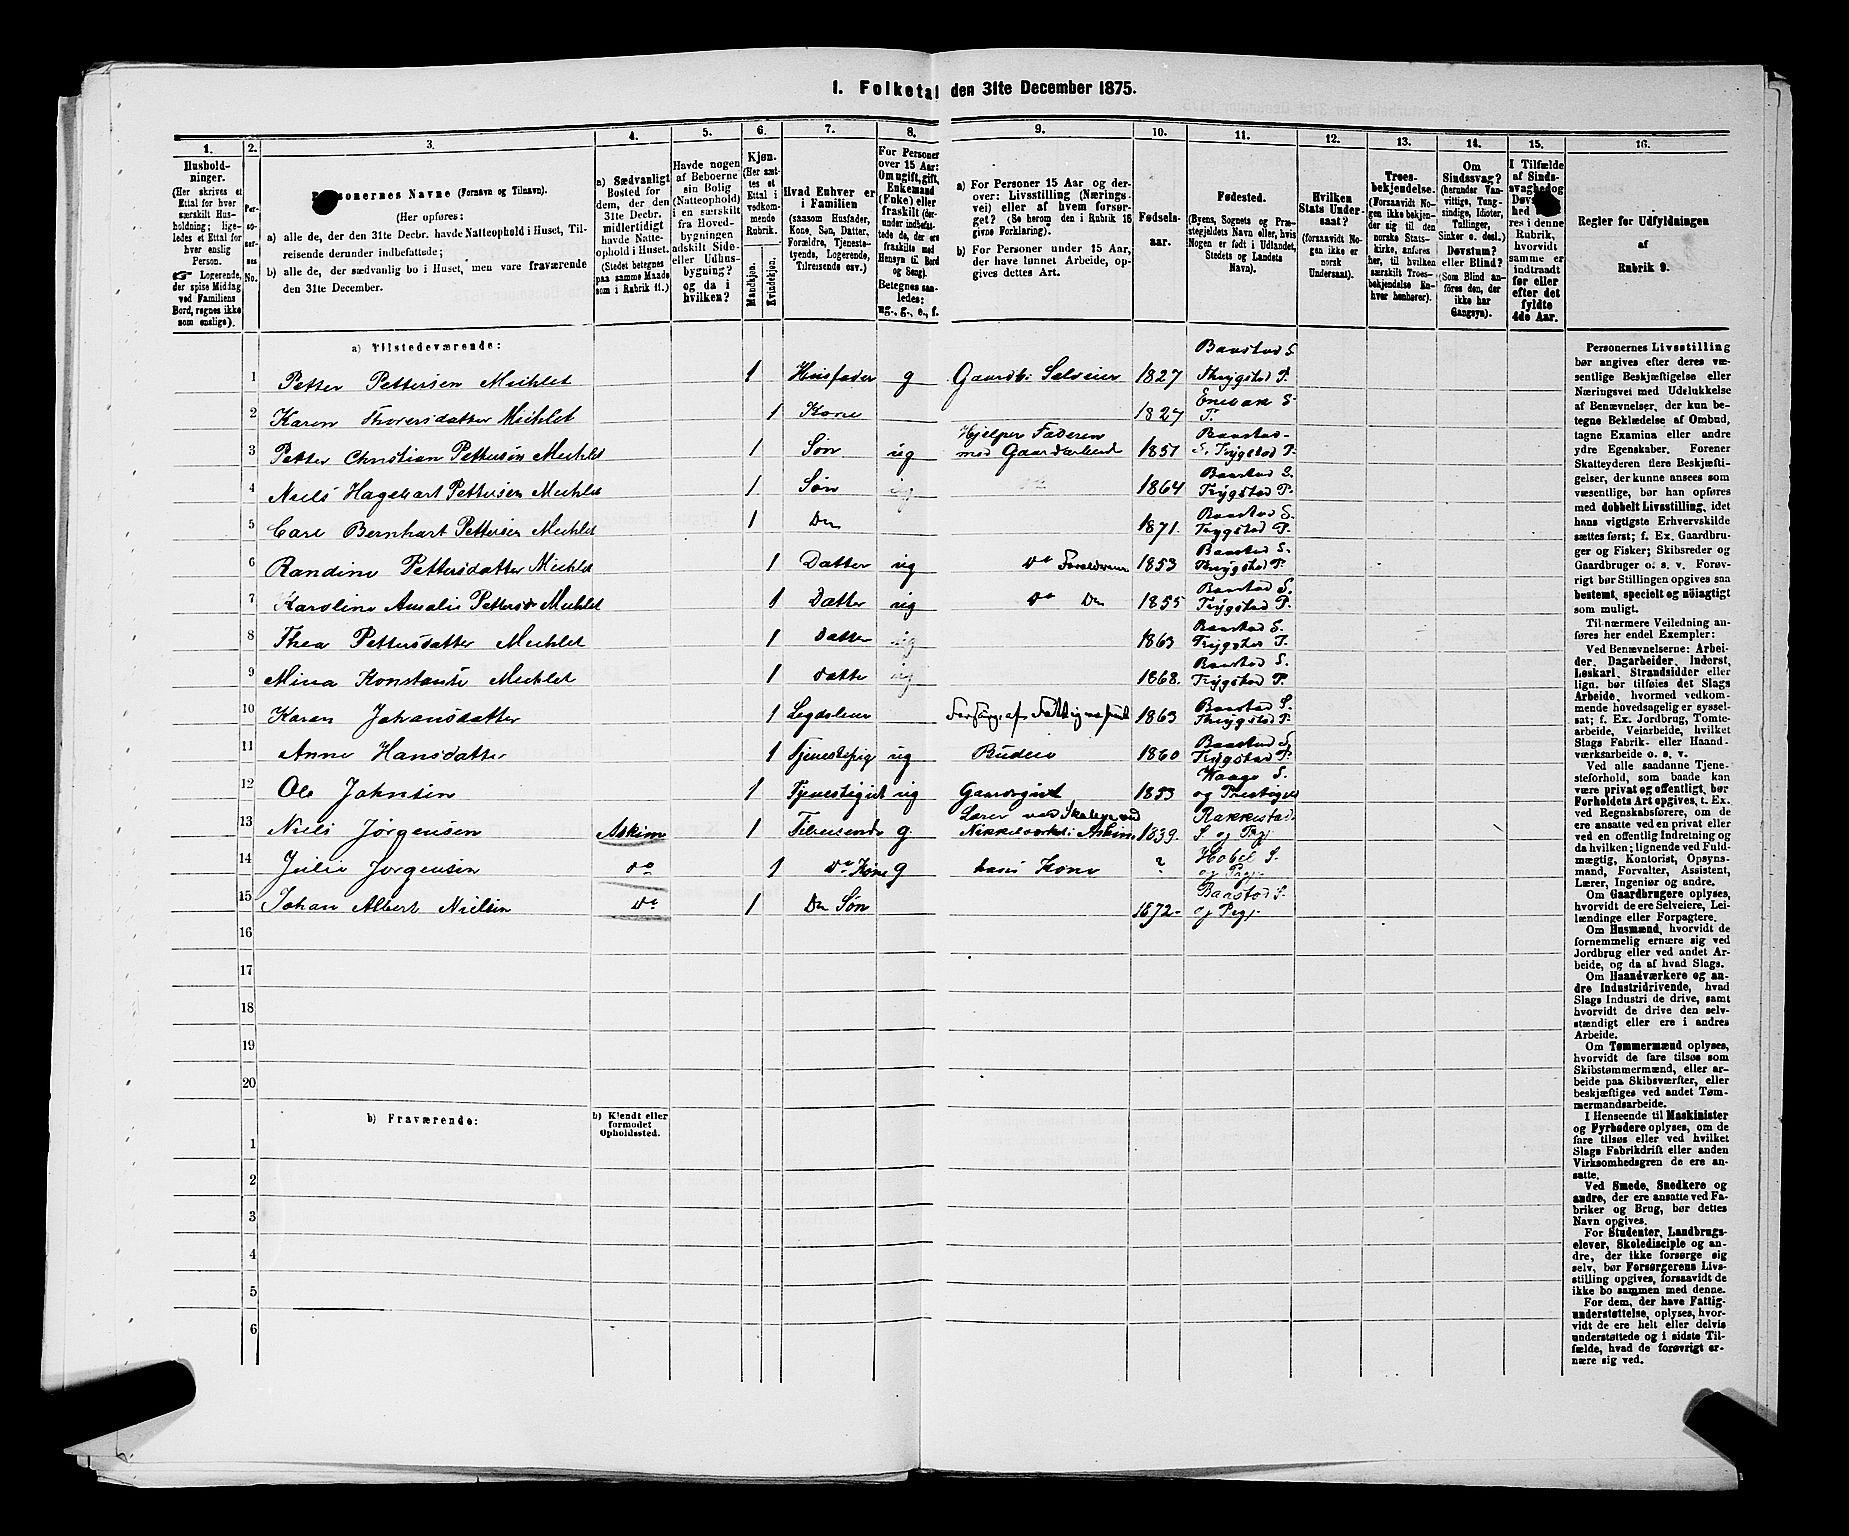 1. Folketal den 31te December 1875.
1.
2.
3.
4.
5.
6.
7.
8.
9.
10.
11.
12.
13.
14.
15.
16.
Hushold-
ninger.
(Her skrives et
Ettal for hver
særskilt Hus-
holdning; lige-
ledes et Ettal for
hver enslig
Person.
☞ Logerende,
der spise Middag
ved Familiens
Bord, regnes ikke
som enslige).
Per-
so-
ner-
nes
No.
Personernes Navne (Fornavn og Tilnavn).
(Her opføres:
a) alle de, der den 31te Decbr. havde Natteophold i Huset, Til-
reisende derunder indbefattede;
b) alle de, der sædvanlig bo i Huset, men vare fraværende
den 31te December.
a) Sædvanligt
Bosted for
dem, der den
31te Decbr.
midlertidigt
havde Natte-
ophold i Huset.
(Stedet betegnes
paa samme Maade
som i Rubrik 11.)
Havde nogen
af Beboerne
sin Bolig
(Natteophold)
i en særskilt
fra Hoved-
bygningen
adskilt Side-
eller Udhus-
bygning?
og da i
hvilken?
Kjøn.
(Her sæt-
tes et
Ettal i
vedkom-
mende
Rubrik.
Mandkjøn.
Kvindekjøn.
Hvad Enhver er
i Familien
(saasom Husfader,
Kone, Søn, Datter,
Forældre, Tjeneste-
tyende, Logerende,
Tilreisende osv.)
For Personer
over 15 Aar:
Om ugift, gift,
Enkemand
(Enke) eller
fraskilt (der-
under indbefat-
tede de, der ere
fraskilte med
Hensyn til Bord
og Seng).
Betegnes saa-
ledes:
ug., g., e., f.
a) For Personer 15 Aar og der-
over: Livsstilling (Nærings-
vei) eller af hvem forsør-
get? (Se herom den i Rubrik 16
givne Forklaring).
b) For Personer under 15 Aar,
der have lønnet Arbeide, op-
gives dettes Art.
Fødsels-
aar.
Fødested.
(Byens, Sognets og Præ-
stegjeldets Navn eller, hvis
Nogen er født i Udlandet,
Stedets og Landets
Navn).
Hvilken
Stats Under-
saat?
(forsaavidt No-
gen ikke er
norsk
Undersaat).
Troes-
bekjendelse.
(Forsaavidt No-
gen ikke bekjen-
der sig til den
norske Stats-
kirke, anføres
her, til hvilken
særskilt Troes-
bekjendelse En-
hver henhører).
Om
Sindssvag?
(herunder Van-
vittige, Tung-
sindige, Idioter,
Tullinger,
Sinker o. desl.)
Døvstum?
eller Blind?
(Som Blind an-
føres den, der
ikke har
Gangsyn).
I Tilfælde
af Sinds-
svaghed og
Døvstum-
hed anfø-
res i denne
Rubrik,
hvorvidt
samme er
indtraadt
før eller
efter det
fyldte
4de Aar.
Regler for Udfyldningen
af
Rubrik 9.
a) Tilstedeværende:
1 Petter Pettersen 1 Husfader g Gaardbr. Selveier 1827 Baastad S. Thrygstad P.
2 Karen Thoresdatter 1 Kone 1827 Enebak S. P.
3 Petter Christian Pettersen 1 Søn ug Hjelper Faderen med Gaardarbeide 1857 Baastad S. Trygstad P.
4 Niels Pettersen 1 Søn ug 1864 Baastad S. Trygstad P.
5 Carl Bernhart Pettersen 1 Do 1871. Baastad S. Trygstad P.
6 Randine Pettersdatter 1 Datter ug do Forældrene 1853 Baastad S. Thrygstad P.
7 Karoline Amalie Pettersd. 1 Datter ug do Do 1855 Baastad S. Trygstad P.
8 Thea Pettersdatter 1 Datter ug 1863 Baastad S. Trygstad P.
9 Mina Konstanse 1 datter ug 1868. Baastad S. Trygstad P.
10 Karen Johansdatter 1 Legdslem Forsørges af Fattigvæsenet 1863 Baastad S. Thrygstad P.
11 Anne Hansdatter 1 Tjenestepige ug Budeie 1860 Baastad S. Trygstad P.
12 Ole Johnsen 1 Tjenestegut ug Gaardsgut 1853 Waage S. og Prestegjeld
13 Niels Jørgensen Askim 1 Tilreisende g. Lærer ved Skolen ved Nikkelværket i Askim 1839. Rakkestad S. og Pgj.
14 Julie Jørgensen do 1 do Kone g hans Kone ? Hobøl S. og Pgj.
15 Johan Albert Nielsen Do 1 Do Søn 1872. Baastad S. og Pegj.
16
17
18
19
20
b) Fraværende:
b) Kjendt eller
formodet
Opholdssted.
1
2
3
4
5
6
Personernes Livsstilling
bør angives efter deres væ-
sentlige Beskjæftigelse eller
Næringsvei med Udelukkelse
af Benævnelser, der kun be-
tegne Beklædelse af Ombud,
tagne Examina eller andre
ydre Egenskaber. Forener
Skatteyderen flere Beskjæfti-
gelser, der kunne ansees som
væsentlige, bør han opføres
med dobbelt Livsstilling, idet
hans vigtigste Erhvervskilde
sættes først; f. Ex. Gaardbru-
ger og Fisker; Skibsreder og
Gaardbruger o. s. v. Forøv-
rigt bør Stillingen opgives saa
bestemt, specielt og nøiagtigt
som muligt.
Til nærmere Veiledning an-
føres her endel Exempler:
Ved Benævnelserne: Arbei-
der, Dagarbeider, Inderst,
Løskarl, Strandsidder eller
lign. bør tilføies det Slags
Arbeide, hvormed vedkom-
mende hovedsagelig er syssel-
sat; f. Ex. Jordbrug, Tomte-
arbeide, Veiarbeide, hvilket
Slags Fabrik- eller Haand-
værksarbeide o. s. v.
Ved alle saadanne Tjene-
steforhold, som baade kan
være privat og offentligt, bør
Forholdets Art opgives, t. Ex.
ved Regnskabsførere, om de
ere ansatte ved en privat eller
ved en offentlig Indretning og
da hvilken; lignende ved Fuld-
mægtig, Kontorist, Opsyns-
mand, Forvalter, Assistent,
Lærer, Ingeniør og andre.
Om Gaardbrugere oplyses,
hvorvidt de ere Selveiere, Lei-
lændinge eller Forpagtere.
Om Husmænd, hvorvidt de
fornemmelig ernære sig ved
Jordbrug eller ved andet Ar-
beide, og da af hvad Slags.
Om Haandværkere og an-
dre Industridrivende, hvad
Slags Industri de drive, samt
hvorvidt de drive den selv-
stændigt eller ere i andres
Arbeide.
Om Tømmermænd oplyses,
hvorvidt de fare tilsøs som
Skibstømmermænd, eller ar-
beide paa Skibsværfter, eller
beskjæftiges ved andet Tøm-
mermandsarbeide.
I Henseende til Maskinister
og Fyrbødere oplyses, om de
fare tilsøs eller ved hvilket
Slags Fabrikdrift eller anden
Virksomhedsgren de ere an-
satte.
Ved Smede, Snedkere og
andre, der ere ansatte ved Fa-
briker og Brug, bør dettes
Navn opgives.
For Studenter, Landbrugs-
elever, Skoledisciple og an-
dre, der ikke forsørge sig
selv, bør Forsørgerens Livs-
stilling opgives, forsaavidt de
ikke bo sammen med denne.
For dem, der have Fattig-
understøttelse, oplyses, hvor-
vidt de ere helt eller delvis
understøttede og i sidste Til-
fælde, hvad de forøvrigt er-
nære sig ved.